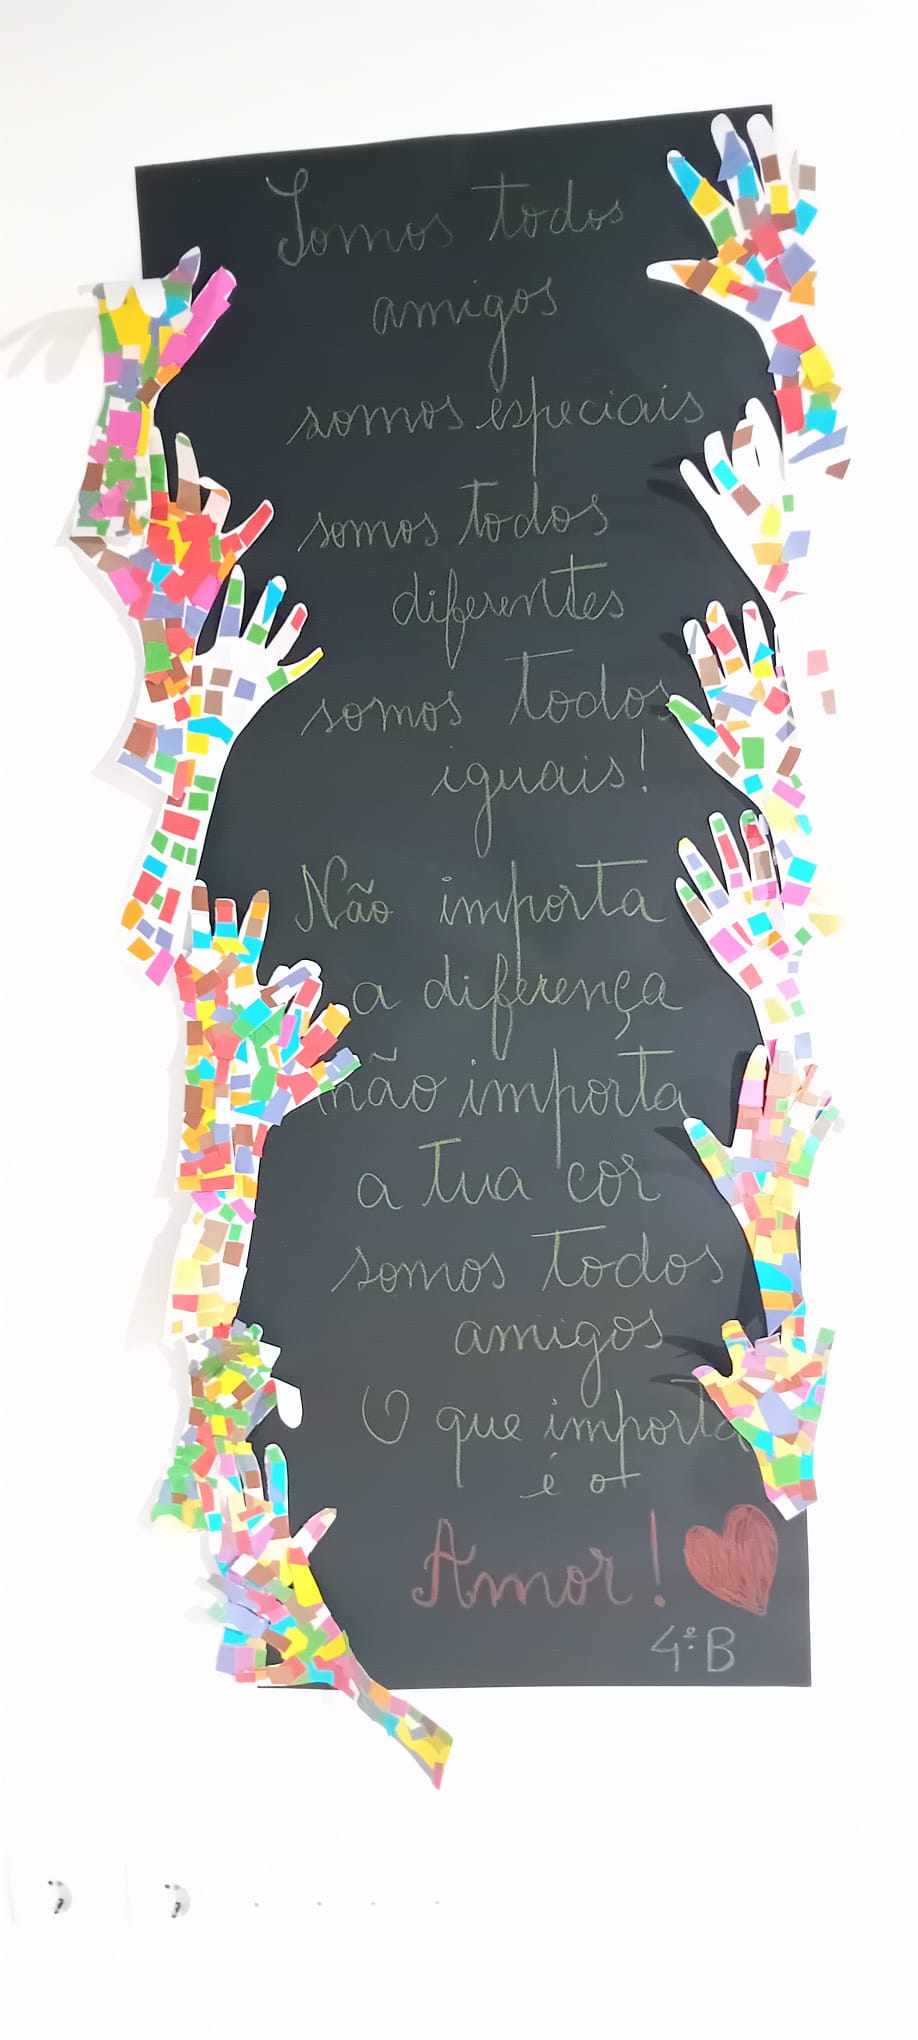 Somos todos
amigos
somos especiais
somos todos
diferentes
somos todos
iguais!
Não importa
a diferença
não importa
a tua cor
somos todos
amigos
O que importa
é o
Amor!
4.º B